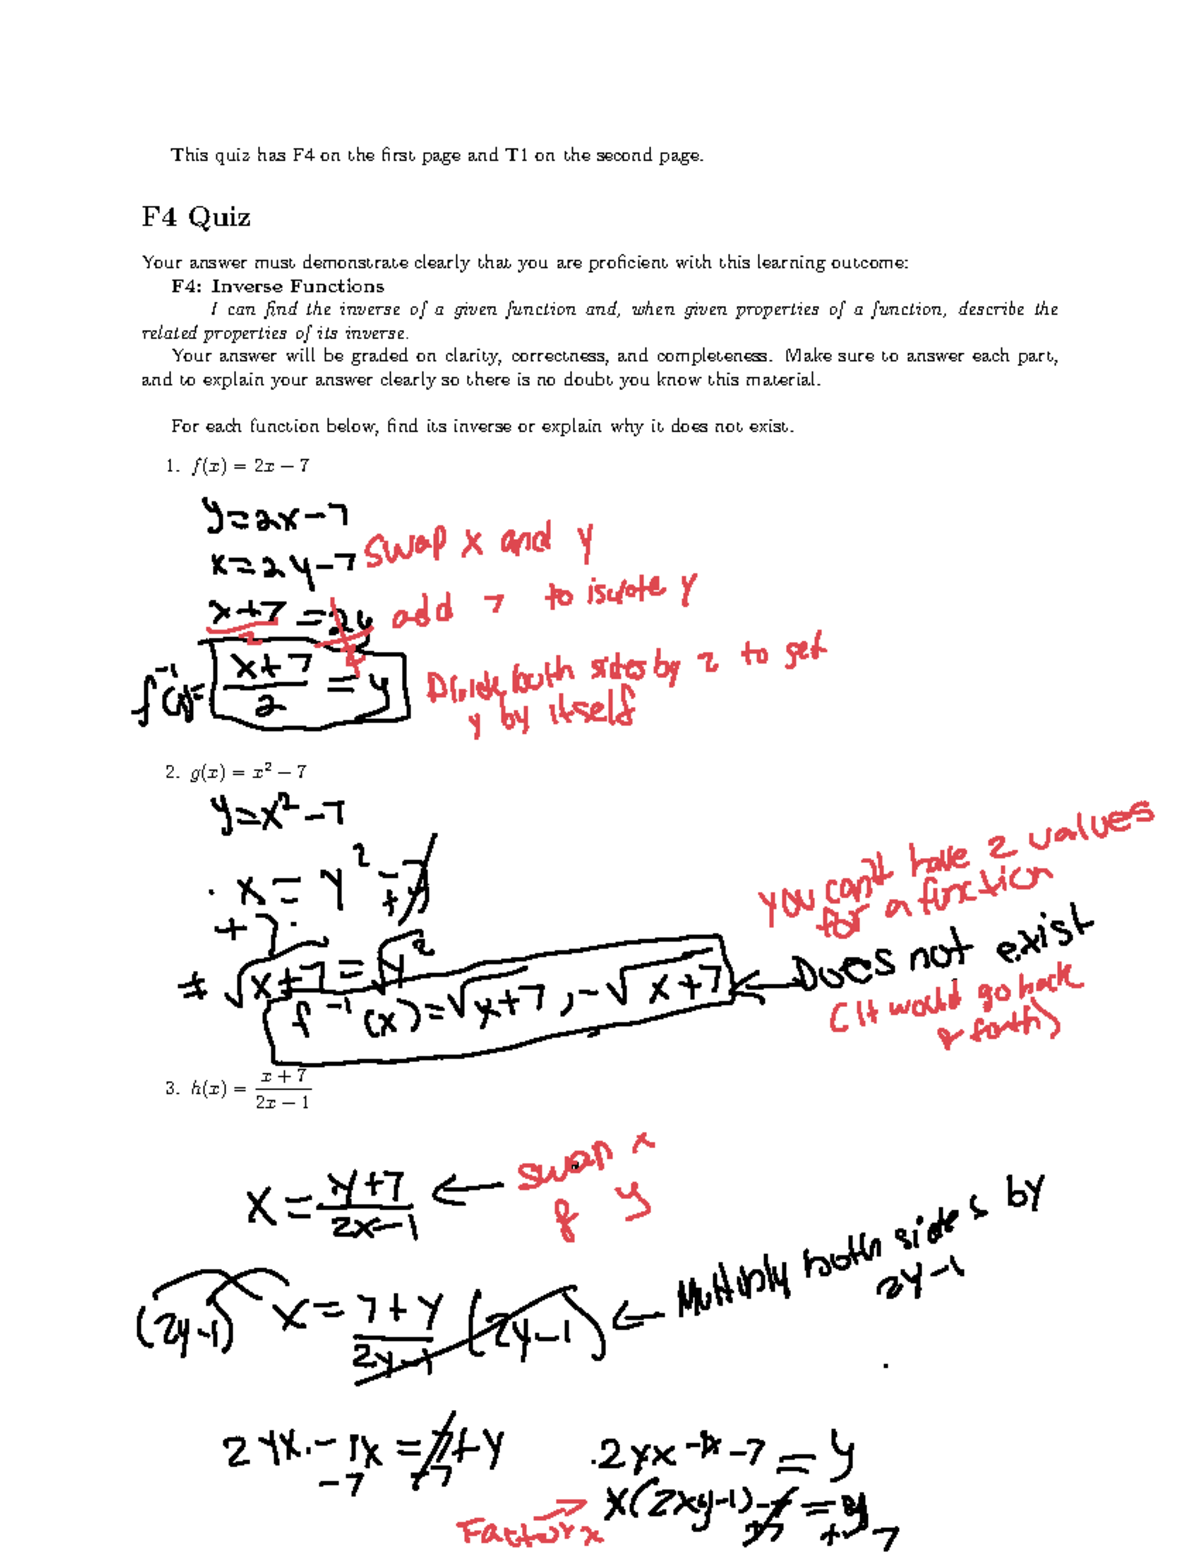 This quiz has F4 on the first page and T1 on the second page.
F4 Quiz
Your answer must demonstrate clearly that you are proficient with this learning outcome:
F4: Inverse Functions
I can find the inverse of a given function and, when given properties of a function, describe the
related properties of its inverse.
Your answer will be graded on clarity, correctness, and completeness. Make sure to answer each part,
and to explain your answer clearly so there is no doubt you know this material.
For each function below, find its inverse or explain why it does not exist.
1. f(x) = 2x − 7
y=2x-7
x=2y-7 Swap x and y
x+7 = 2y add 7 to isolate y
2
f⁻¹(x)= x+7/2 = y Divide both sides by 2 to get
y by itself
2. g(x) = x² − 7
y=x²-7
x = y² -7
+7 +7
± √x+7 = √y²
f⁻¹(x)=√x+7, -√x+7 ← Does not exist
You can't have 2 values
for a function
(It would go back
& forth)
3. h(x) = x + 7 / 2x − 1
x = y+7 / 2x-1 ← swap x
& y
(2y-1) x = 7+y / 2y-1 (2y-1) ← Multiply both sides by
2y-1
2yx - 1x = 7+y
-7 -7
2yx -1x -7 = y
Factor x → x(2xy-1) -7 = y
+7 +7